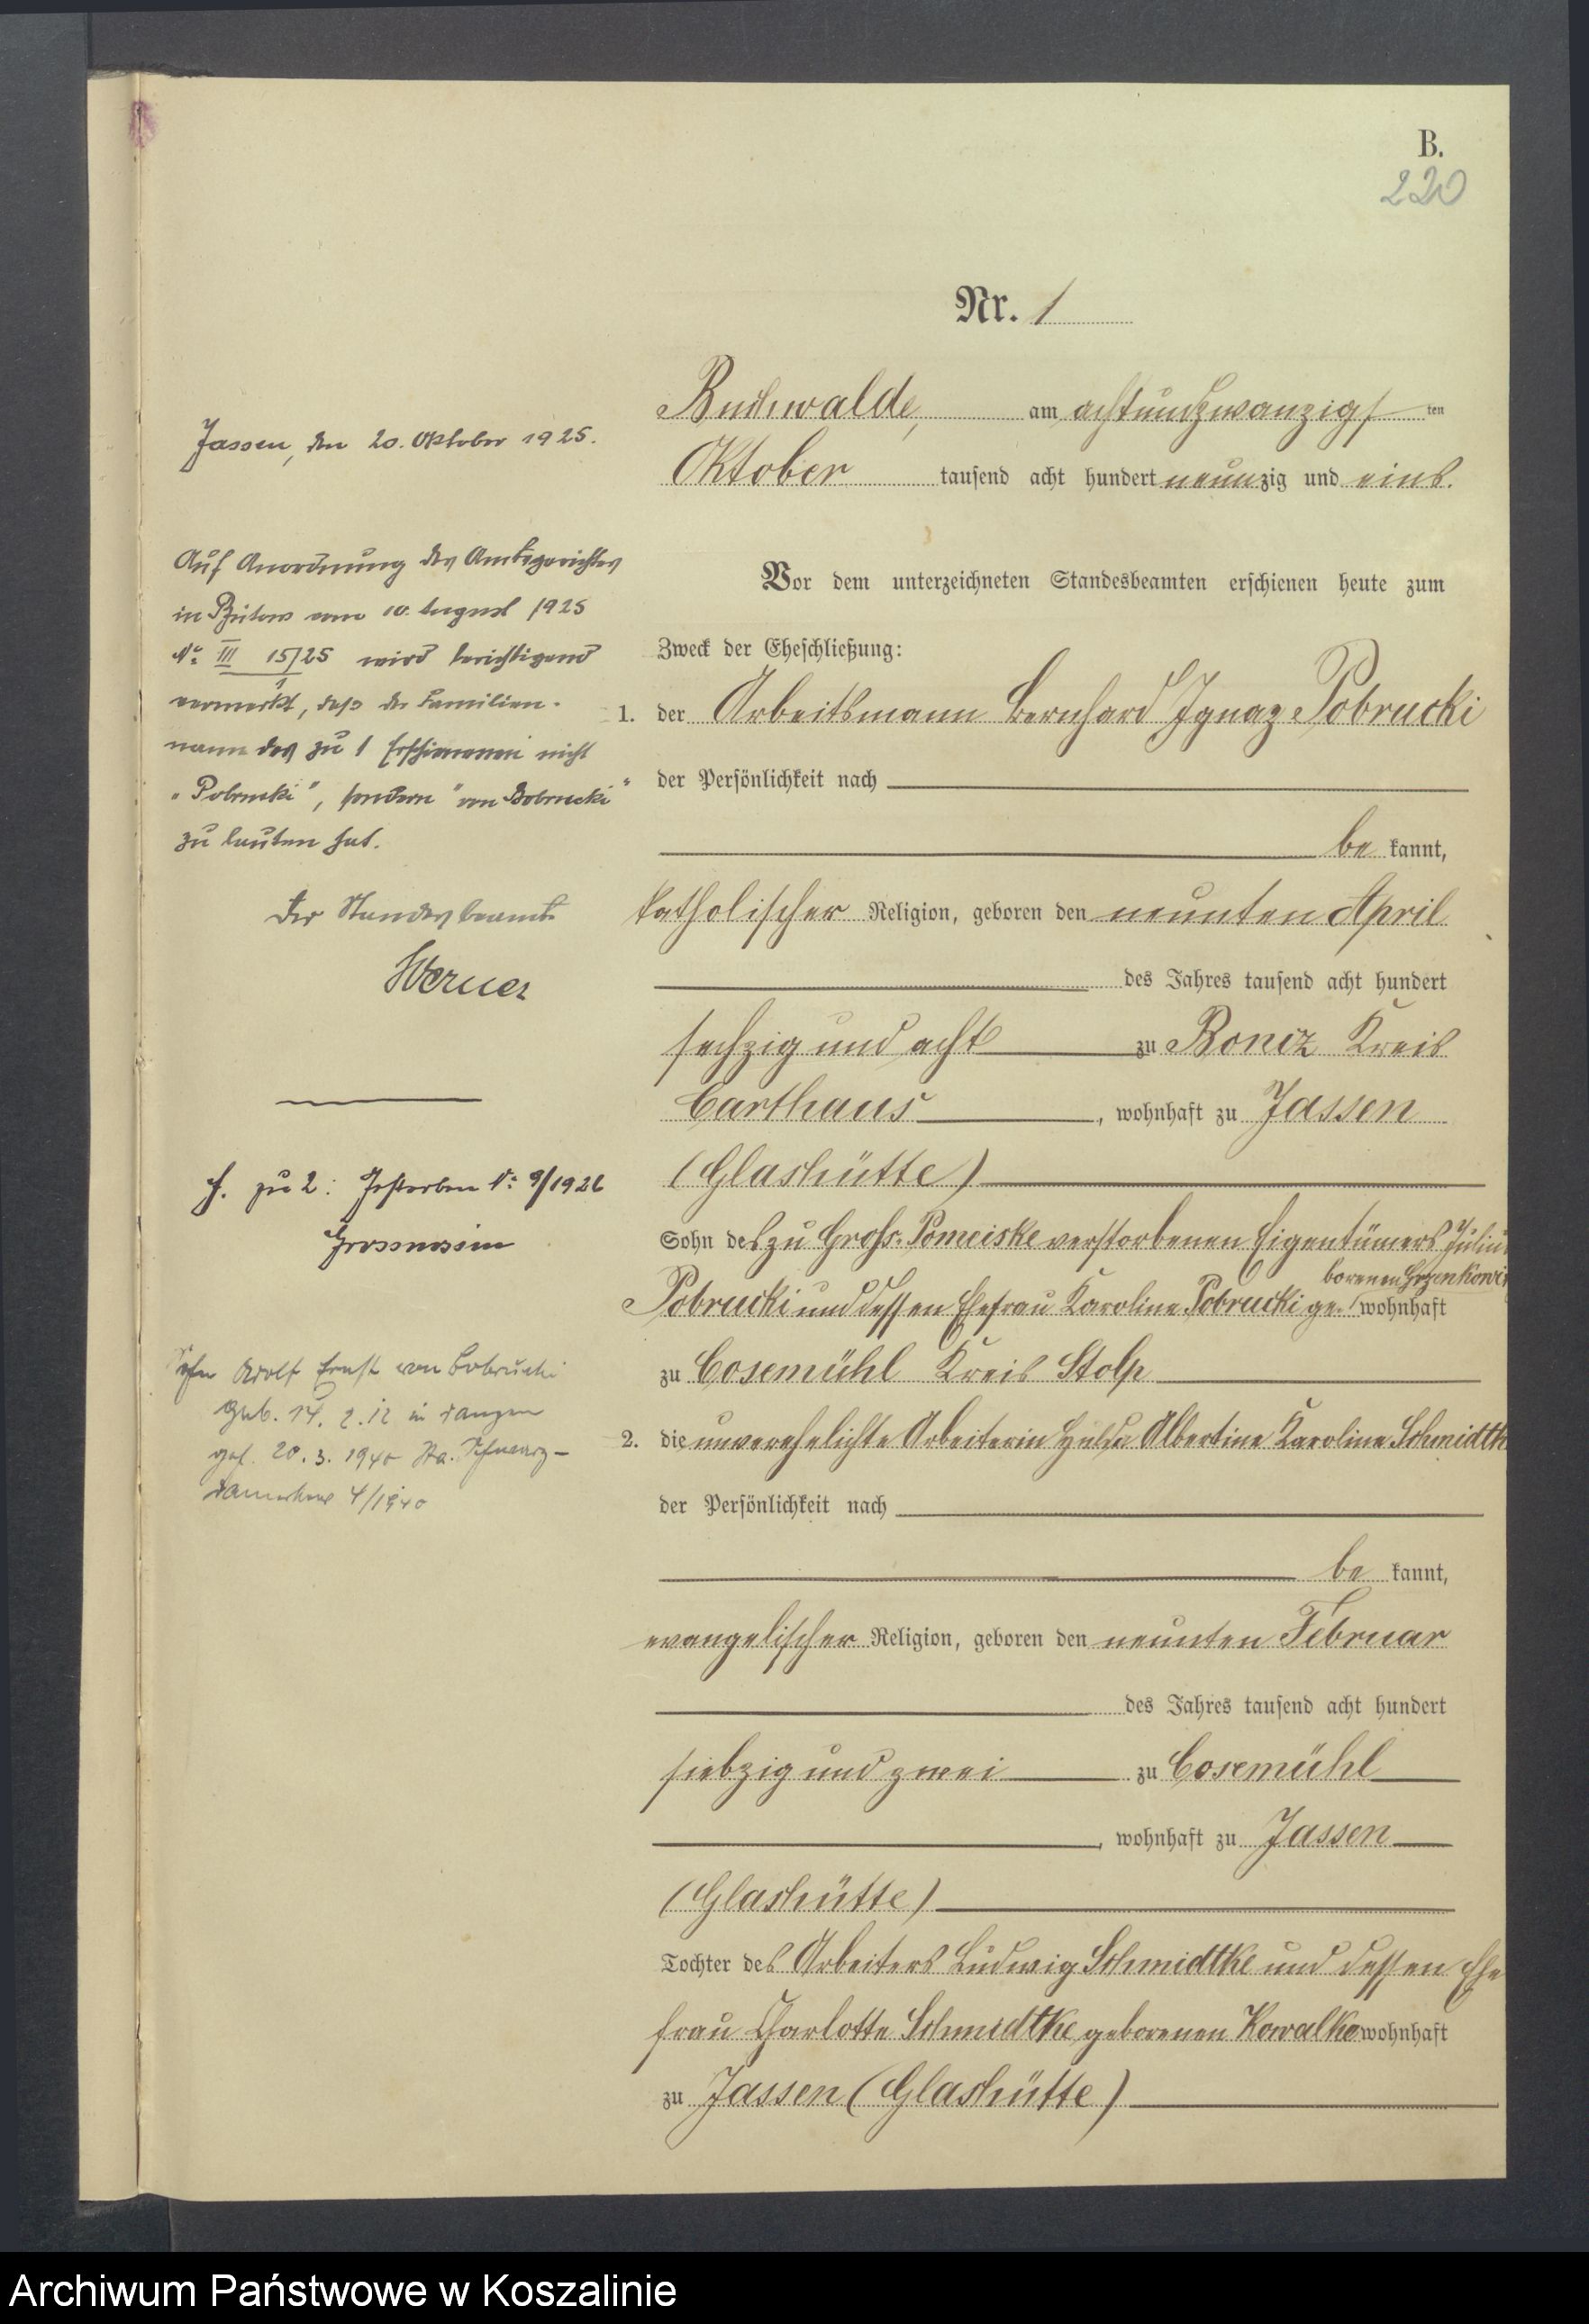 B.
220
Nr. 1
Buchwalde, am achtundzwanzigsten
Oktober tausend acht hundert neunzig und eins.
Vor dem unterzeichneten Standesbeamten erschienen heute zum
Zweck der Eheschließung:
1. der Arbeitsmann Bernhard Ignaz Pobrucki
der Persönlichkeit nach
be kannt,
katholischer Religion, geboren den neunten April
des Jahres tausend acht hundert
sechzig und acht zu Roncz Kreis
Carthaus, wohnhaft zu Jassen
(Glashütte)
Sohn des zu Groß-Pomeiske verstorbenen Eigentümers
Pobrucki und dessen Ehefrau Karoline Pobrucki ge- wohnhaft
zu Cosemühl Kreis Stolp
2. die unverehelichte Arbeiterin Albertine Karoline
der Persönlichkeit nach
be kannt,
evangelischer Religion, geboren den neunten Februar
des Jahres tausend acht hundert
siebzig und zwei zu Cosemühl
, wohnhaft zu Jassen
(Glashütte)
Tochter des Arbeiters Ludwig Schmidtke und dessen Ehe
frau Charlotte Schmidtke geborenen wohnhaft
zu Jassen (Glashütte)
Jassen, den 20. Oktober 1925.
Auf Anordnung des Amtsgerichtes
in Bütow vom 10. August 1925
No III 15/25 wird berichtigend
vermerkt, daß der Familien-
name des zu 1 Erschienenen nicht
„Pobrucki", sondern "von Bobrucki"
zu lauten hat.
Der Standesbeamte
Werner
zu 2: Gestorben No 9/1926
Grossnossin
Adolf Ernst von Bobrucki
geb. 14. 2. 12 in
20. 3. 1940
4/1940
Archiwum Państwowe w Koszalinie